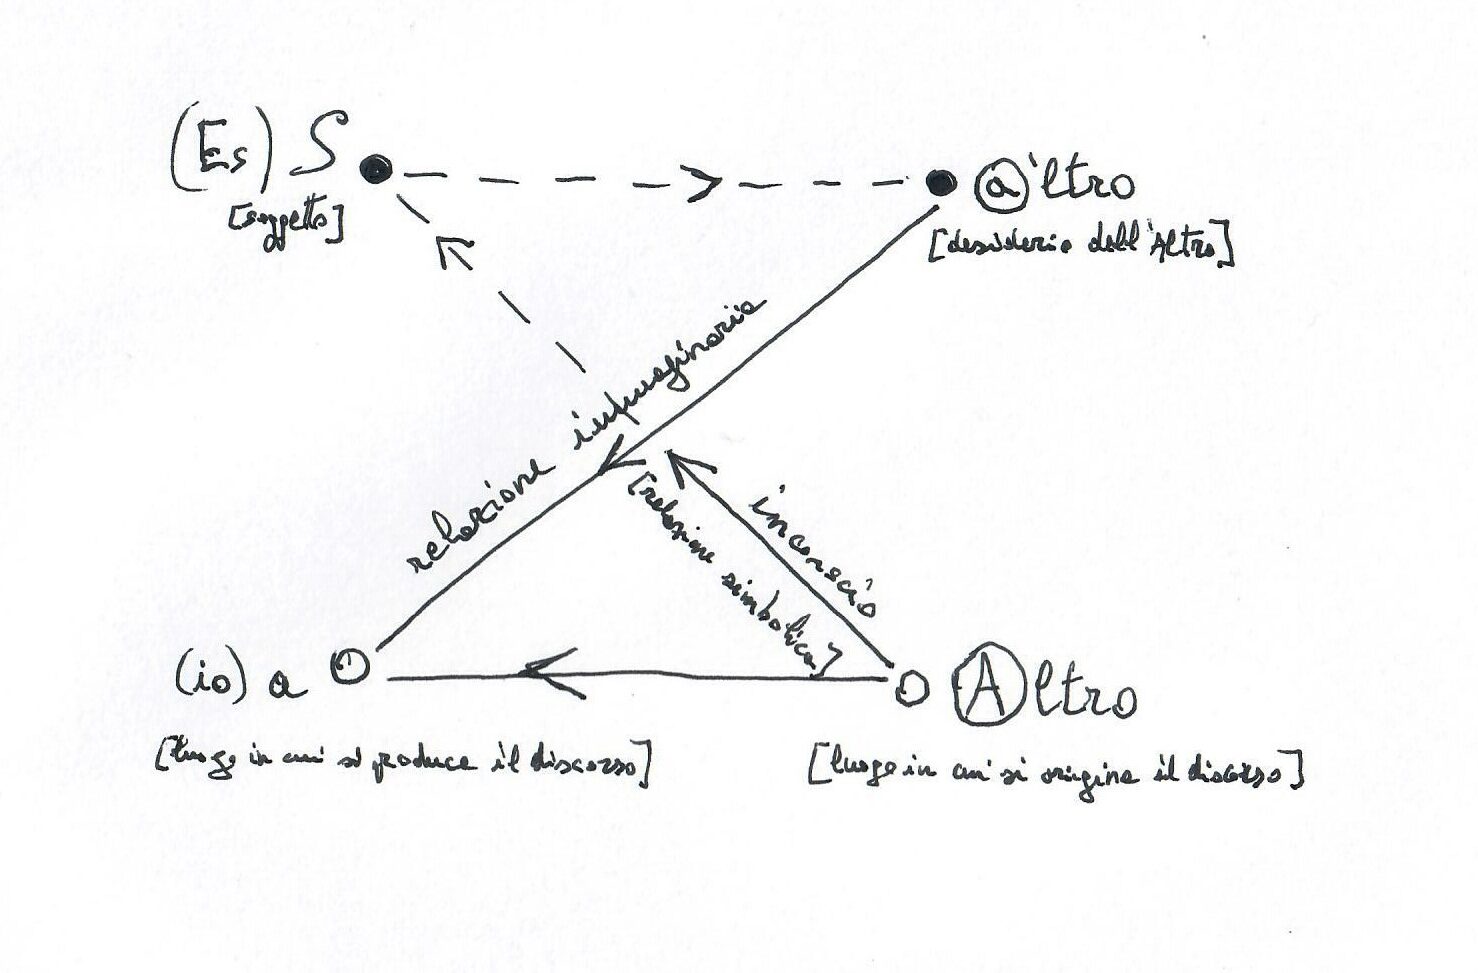 (Es) S
[soggetto]
ⓐ'ltro
[desiderio dell'Altro]
relazione immaginaria
inconscio
[relazione simbolica]
(io) a
Ⓐltro
[luogo in cui si produce il discorso]
[luogo in cui si origina il discorso]